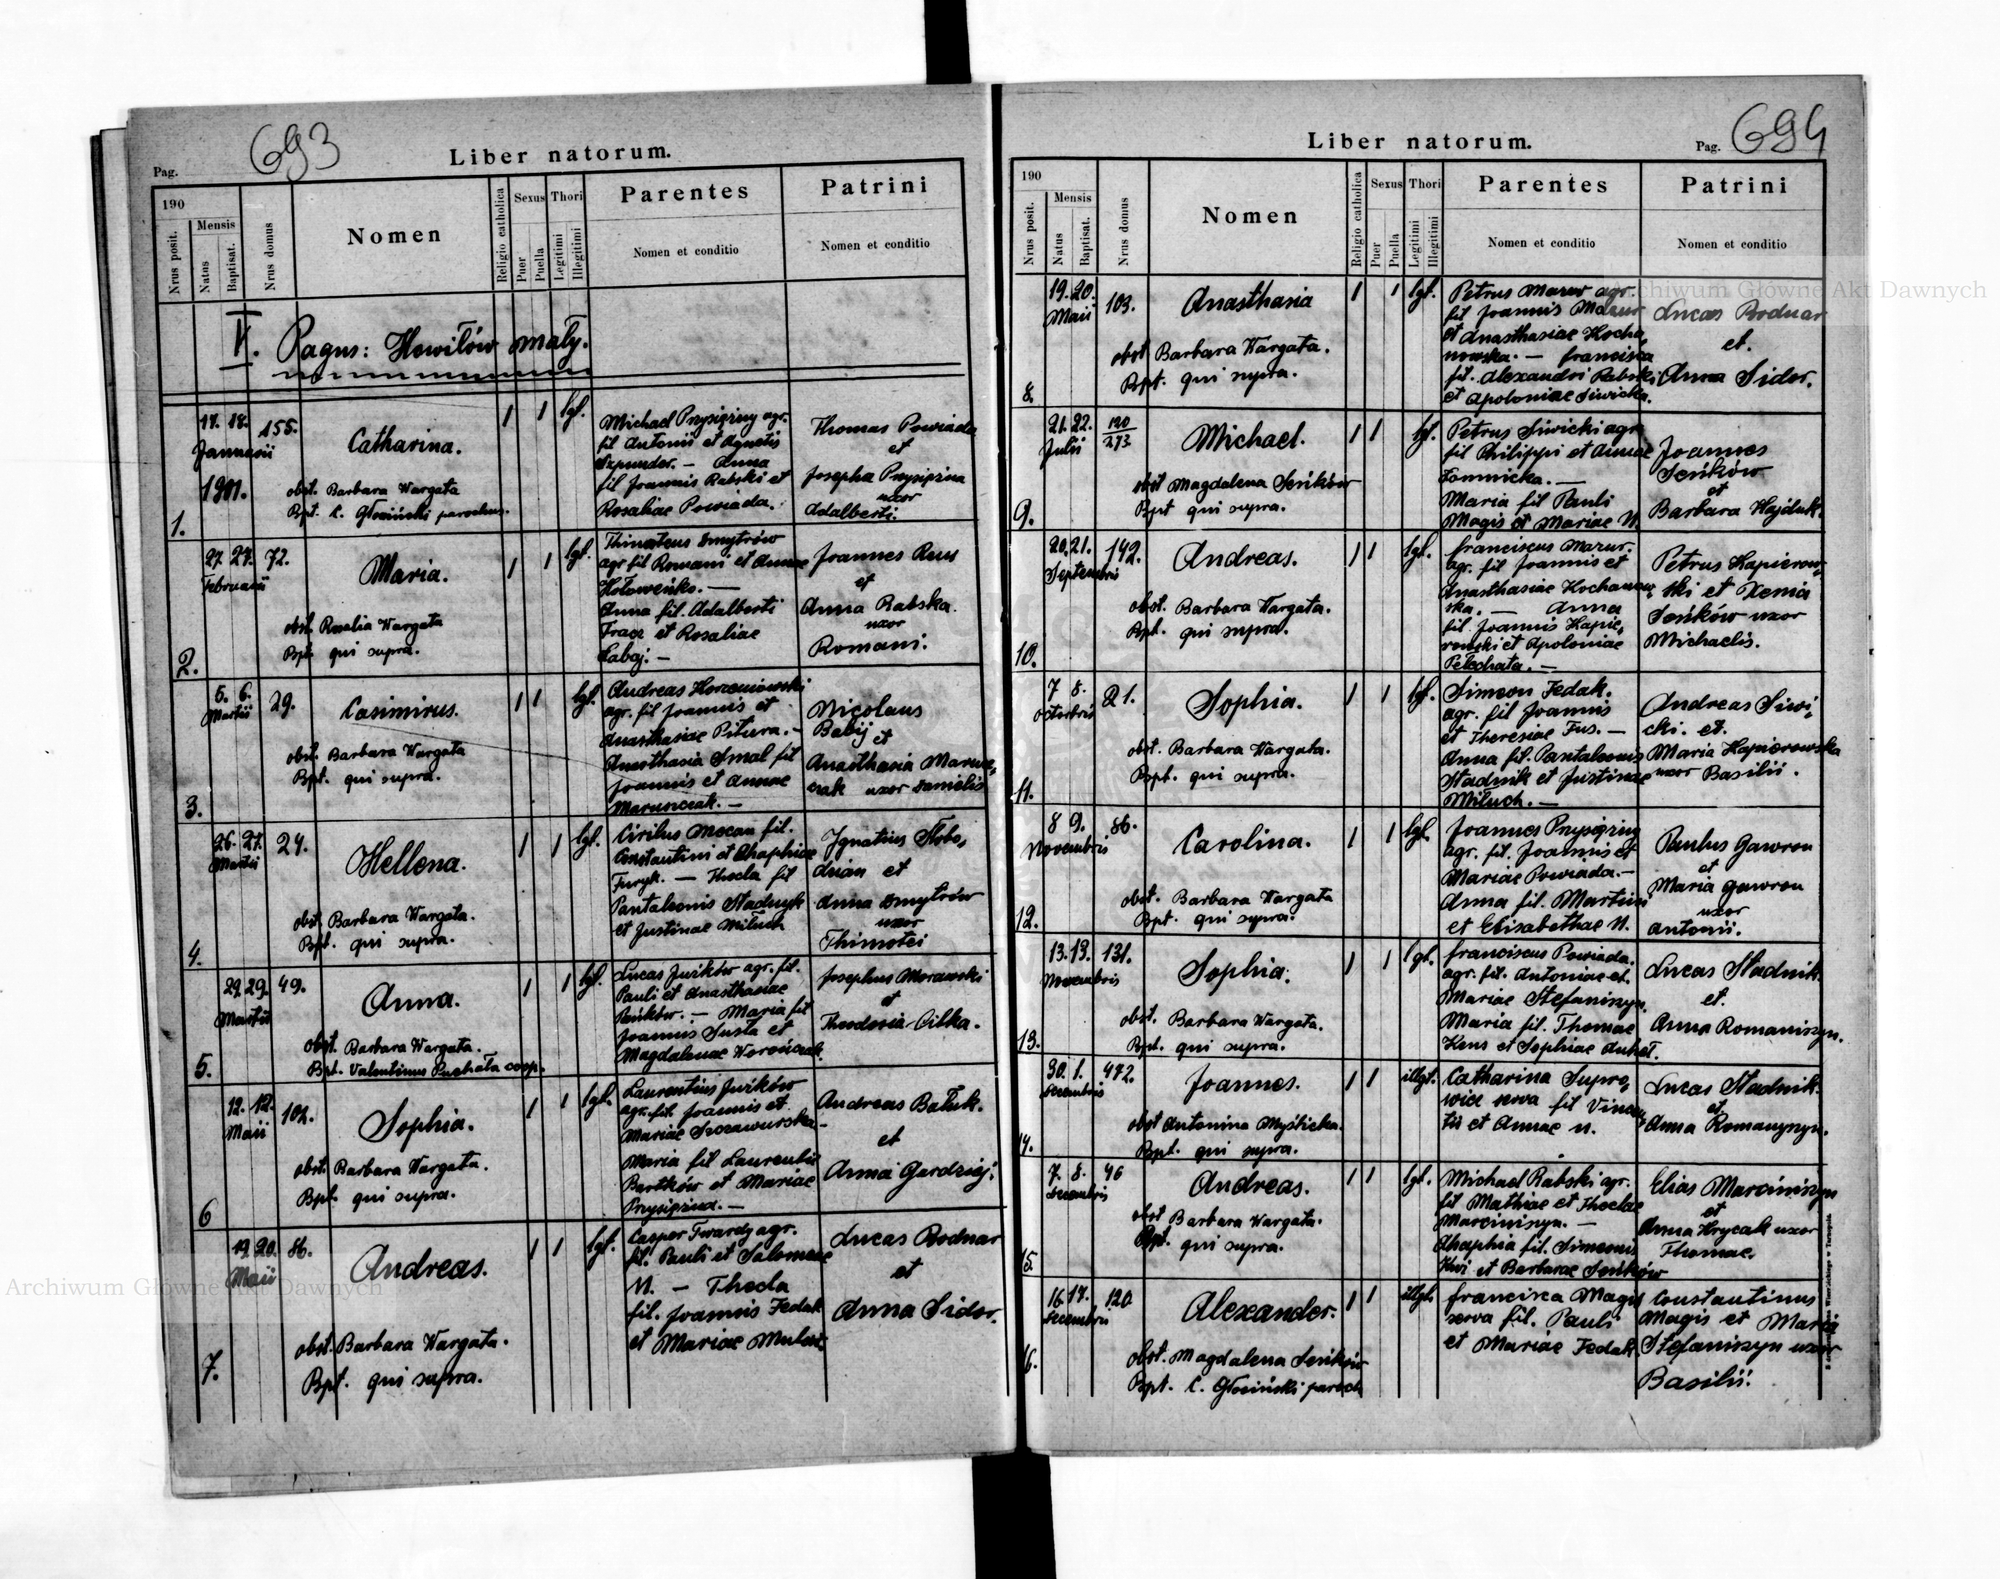 693
Liber natorum.
Pag.
190
Nrus posit.
Mensis
Natus
Baptisat.
Nrus domus
Nomen
Religio catholica
Sexus
Puer
Puella
Thori
Legitimi
Illegitimi
Parentes
Nomen et conditio
Patrini
Nomen et conditio
V. Pagus: Howilów mały.
1.
17. 18. 155.
Januarii
1901.
Catharina.
obst. Barbara Wargata
Bpt. C. Głosiński parochus.
1 1 lgt.
Michael Przysiężny agr.
fil Antonii et Agnetis
Szpunder. — Anna
fil Joannis Rabski et
Rosaliae Powiada.
Thomas Powiada
et
Josepha Przysiężna
uxor
Adalberti.
2.
27. 27. 72.
Februarii
Maria.
obst. Rosalia Wargata
Bpt. qui supra.
1 1 lgt.
Thimoteus Dmytrów
agr fil Romani et Annae
Hołoweńko. —
Anna fil. Adalberti
Tracz et Rosaliae
Łabaj. —
Joannes Rus
et
Anna Rabska.
uxor
Romani.
3.
5. 6. 29.
Martii
Casimirus.
obst. Barbara Wargata
Bpt. qui supra.
1 1 lgt.
Andreas Korzeniowski
agr. fil Joannis et
Anasthasiae Pitura. —
Anasthasia Smal fil
Joannis et Annae
Marunczak. —
Nicolaus
Babij
et
Anasthasia Marun-
czak uxor Danielis
4.
26. 27. 24.
Martii
Hellena.
obst. Barbara Wargata.
Bpt. qui supra.
1 1 lgt.
Cirilus Mocan fil.
Constantini et Ahaphiae
Furyk. — Thecla fil
Pantaleonis Stadnyk
et Justinae Miluch
Ignatius Słobo-
drian et
Anna Dmytrów
uxor
Thimotei
5.
29. 29. 49.
Martii
Anna.
obst. Barbara Wargata.
Bpt. Valentinus Puchała coop.
1 1 lgt.
Lucas Juśków agr. fil.
Pauli et Anasthasiae
Pańków. — Maria fil
Joannis Susta et
Magdalenae Worończak
Josephus Morawski
et
Theodosia Cilka.
6
12. 12. 102.
Maii
Sophia.
obst. Barbara Wargata.
Bpt. qui supra.
1 1 lgt.
Laurentius Juśków
agr. fil. Joannis et
Mariae Szczawurska —
Maria fil Laurentii
Bartków et Mariae
Przysiężna. —
Andreas Bałuk.
et
Anna Gardziej.
7.
19. 20. 86.
Maii
Andreas.
obst. Barbara Wargata.
Bpt. qui supra.
1 1 lgt.
Casper Twardy agr.
fil. Pauli et Salomeae
N. — Thecla
fil. Joannis Fedak
et Mariae
Lucas Bodnar
et
Anna Sidor.
Liber natorum.
Pag. 694
190
Nrus posit.
Mensis
Natus
Baptisat.
Nrus domus
Nomen
Religio catholica
Sexus
Puer
Puella
Thori
Legitimi
Illegitimi
Parentes
Nomen et conditio
Patrini
Nomen et conditio
8.
19. 20. 103.
Maii
Anasthasia
obst Barbara Wargata.
Bpt. qui supra.
1 1 lgt.
Petrus Mazur agr.
fil Joannis Mazur
et Anasthasiae Kocha-
nowska. — Francisca
fil. Alexandri Rabski
et Apoloniae Siwicka.
Lucas Bodnar
et.
Anna Sidor.
9.
21. 22. 120/273
Julii
Michael.
obst Magdalena Seńków
Bpt qui supra.
1 1 lgt.
Petrus Siwicki agr.
fil Philippi et Annae
Łomnicka. —
Maria fil Pauli
Magis et Mariae N.
Joannes
Seńków
et
Barbara Hajduk.
10.
20. 21. 142.
Septembris
Andreas.
obst. Barbara Wargata.
Bpt. qui supra.
1 1 lgt.
Franciscus Mazur.
agr. fil Joannis et
Anasthasiae Kochanow-
ska. — Anna
fil. Joannis Kapie-
rowski et Apoloniae
Pelechata. —
Petrus Kapierow-
ski et Xenia
Seńków uxor
Michaelis.
11.
7 8. 21.
Octobris
Sophia.
obst. Barbara Wargata.
Bpt. qui supra.
1 1 lgt.
Simeon Fedak.
agr. fil Joannis
et Theresiae Fus. —
Anna fil. Pantaleonis
Stadnik et Justinae
Miluch. —
Andreas Siwi-
cki. et.
Maria Kapierowska
uxor Basilii.
12.
8 9. 86.
Novembris
Carolina.
obst. Barbara Wargata
Bpt. qui supra.
1 1 lgt.
Joannes Przysiężny
agr. fil. Joannis et
Mariae Powiada. —
Anna fil. Martini
et Elisabethae N.
Paulus Gawron
et
Maria Gawron
uxor
Antonii.
13.
13. 13. 131.
Novembris
Sophia.
obst. Barbara Wargata.
Bpt. qui supra.
1 1 lgt.
Franciscus Powiada.
agr. fil. Antoniae et.
Mariae Stefaniszyn.
Maria fil. Thomae
Kens et Sophiae
Lucas Stadnik.
et.
Anna Romaniszyn.
14.
30. 1. 472.
Decembris
Joannes.
obst Antonina Myślicka.
Bpt. qui supra.
1 1 illgt.
Catharina Supro-
wicz serva fil Vincen-
tii et Annae N.
Lucas Stadnik.
et
Anna Romanyszyn.
15.
7. 8. 46
Decembris
Andreas.
obst Barbara Wargata.
Bpt. qui supra.
1 1 lgt.
Michael Rabski agr.
fil Mathiae et Theclae
Marciniszyn. —
Ahaphia fil. Simeonis
Kwi et Barbarae Seńków
Elias Marciniszyn
et
Anna Hrycak uxor
Thomae.
16.
16 17. 120
Decembris
Alexander.
obst. Magdalena Seńków
Bpt. C. Głosiński paroch
1 1 illgt.
Francisca Magis
serva fil. Pauli
et Mariae Fedak
Constantinus
Magis et Maria
Stefaniszyn uxor
Basilii.
Archiwum Główne Akt Dawnych
Archiwum Główne Akt Dawnych